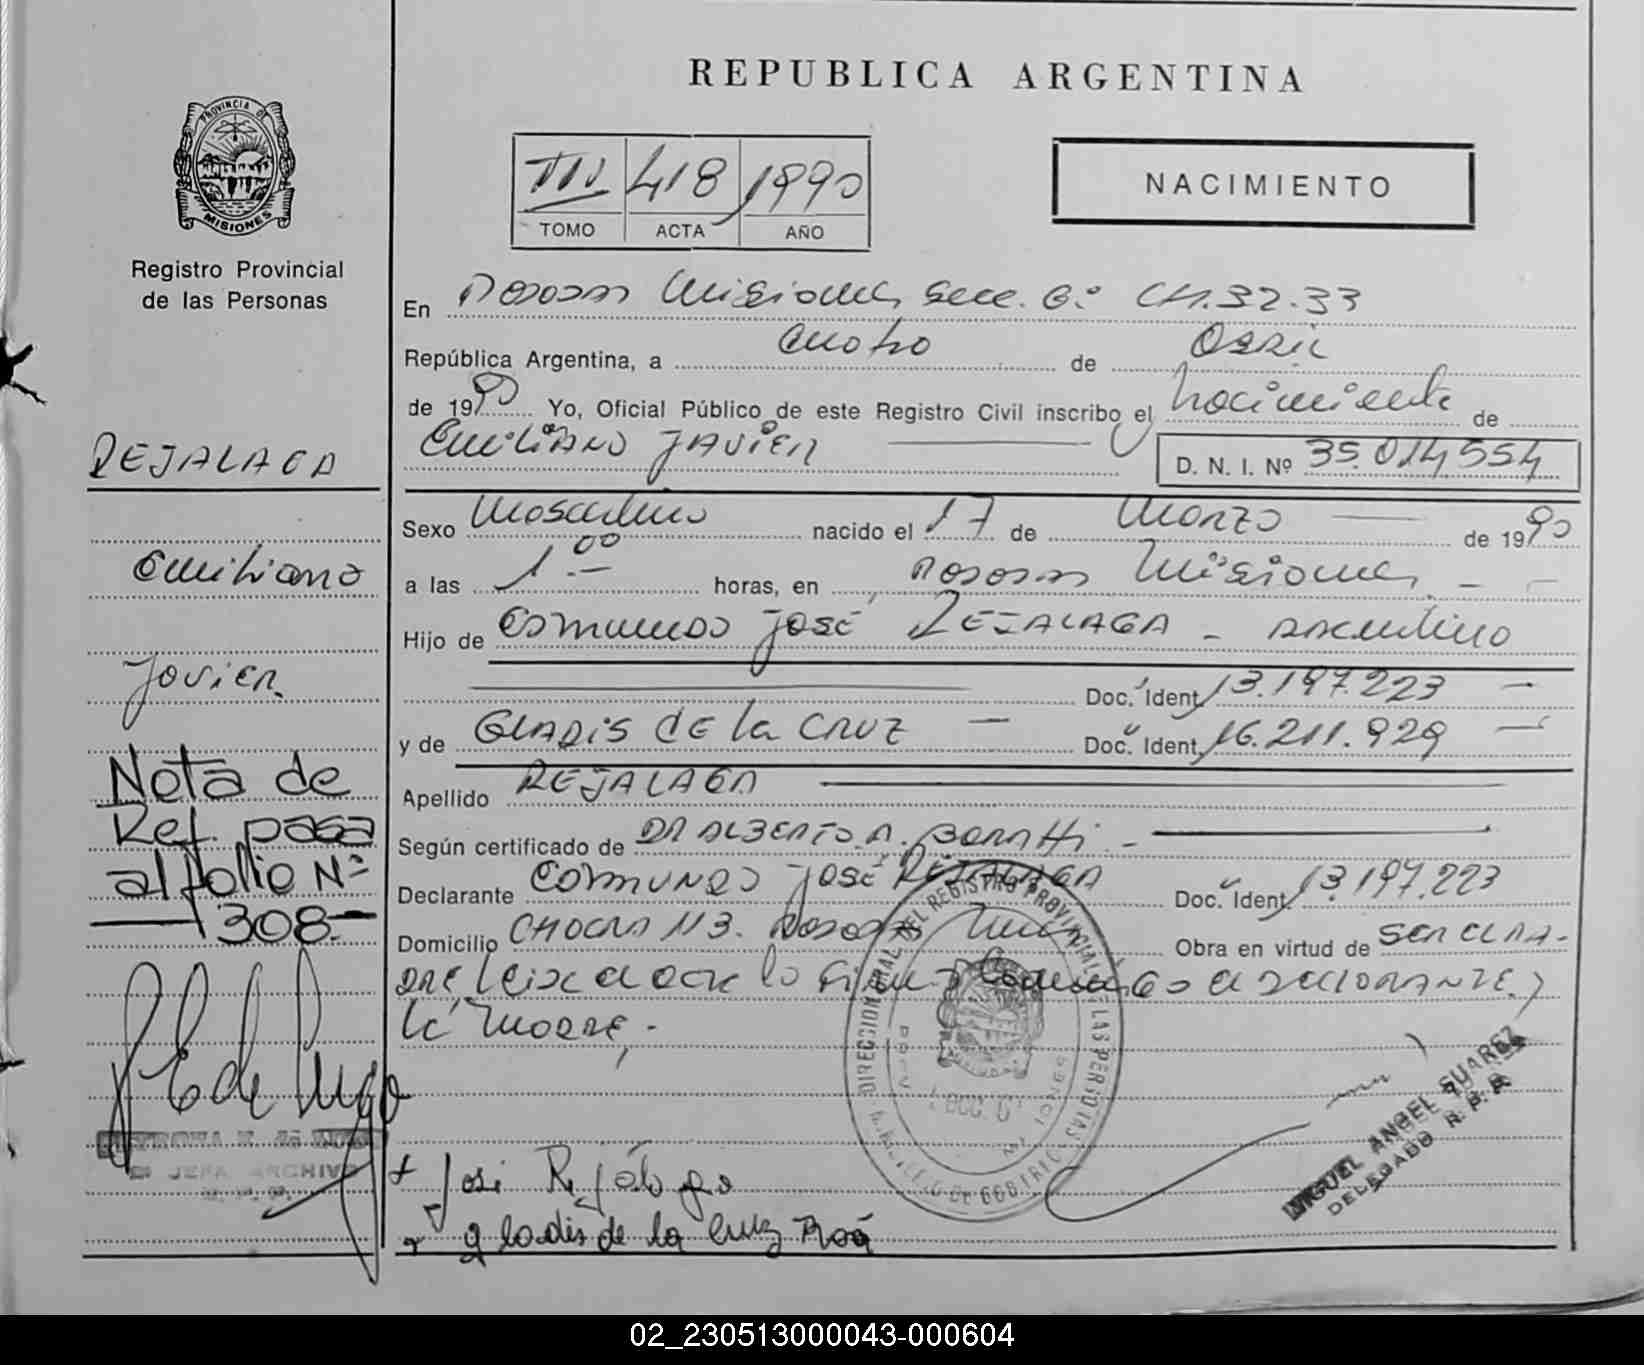 REPUBLICA ARGENTINA
PROVINCIA DE
MISIONES
Registro Provincial
de las Personas
III 418 1990
TOMO ACTA AÑO
NACIMIENTO
En Posadas Misiones, Secc. 6º CH. 32-33
República Argentina, a cuatro de Abril
de 1990 Yo, Oficial Público de este Registro Civil inscribo el nacimiento de
Emiliano Javier D. N. I. Nº 35.014554
Sexo Masculino nacido el 17 de Marzo de 1990
a las 1.00 horas, en Posadas Misiones
Hijo de Edmundo José REJALAGA - Argentino
Doc. Ident. 13.197.223
y de GLADIS de la CRUZ Doc. Ident. 16.211.929
Apellido REJALAGA
Según certificado de DR ALBERTO A.
Declarante Edmundo José REJALAGA Doc. Ident. 13.197.223
Domicilio CHACRA 113. Posadas Obra en virtud de ser el pa-
dre leída el acta lo firman el declarante y
la madre.
REJALAGA
Emiliano
Javier
Nota de
Ref. pasa
al folio Nº
308
JEFA ARCHIVO
DIRECCION GRAL DEL REGISTRO PROVINCIAL DE LAS PERSONAS
MIGUEL ANGEL SUAREZ
DELEGADO R. P. P.
José Rejálaga
gladis de la Cruz Roa
02_230513000043-000604